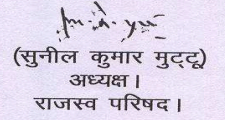 (सुनील कुमार मुट्टू)
अध्यक्ष।
राजस्व परिषद।